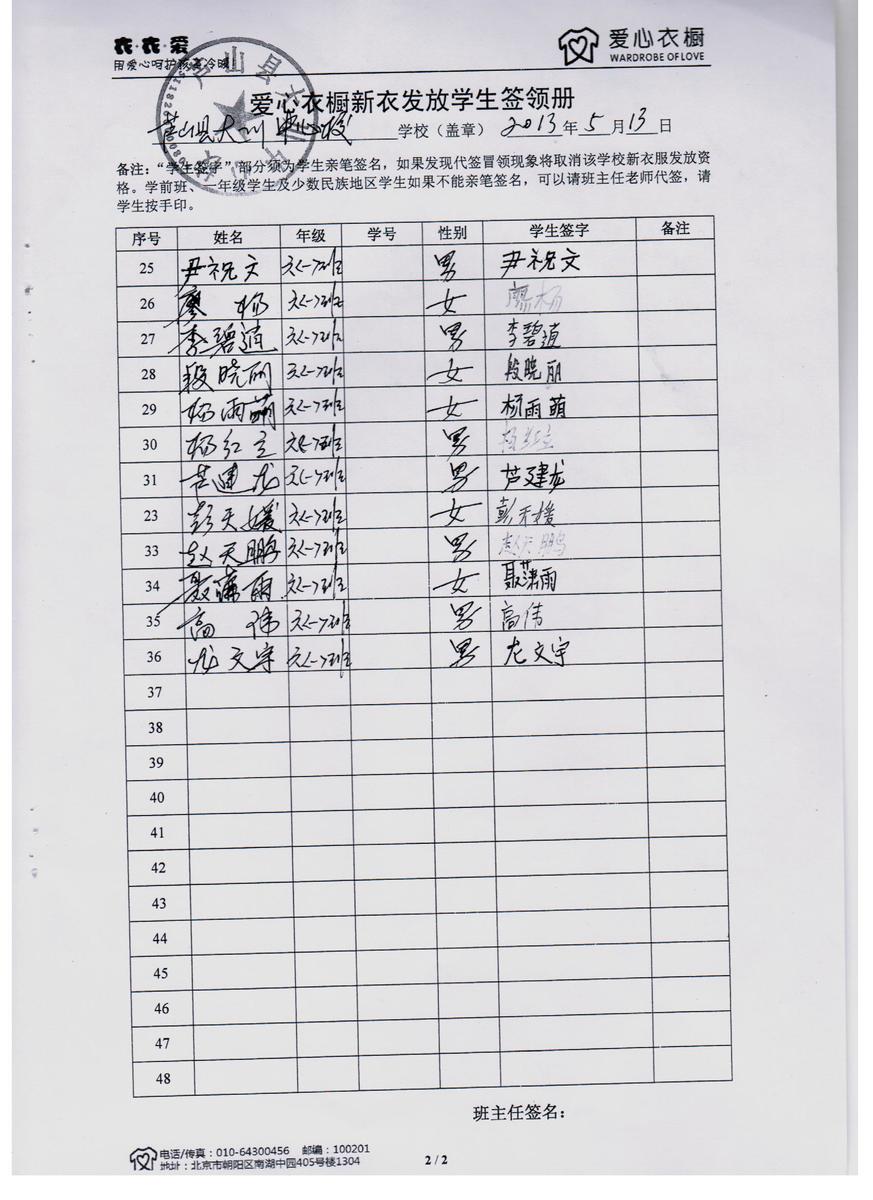 衣·衣·爱
用爱心呵护 冷暖!
爱心衣橱
WARDROBE OF LOVE
爱心衣橱新衣发放学生签领册
芦山县大川中心校 学校(盖章) 2013年5月13日
备注:“学生签字”部分须为学生亲笔签名,如果发现代签冒领现象将取消该学校新衣服发放资
格。学前班、一年级学生及少数民族地区学生如果不能亲笔签名,可以请班主任老师代签,请
学生按手印。
序号 姓名 年级 学号 性别 学生签字 备注
25 尹祝文 男 尹祝文
26 廖杨 女 廖杨
27 李碧 男 李碧
28 段晓丽 女 段晓丽
29 杨雨萌 女 杨雨萌
30 杨红立 男 杨红立
31 芦建龙 男 芦建龙
23 彭天媛 女 彭天媛
33 赵天鹏 男 赵天鹏
34 聂 雨 女 聂 雨
35 高伟 男 高伟
36 龙文宇 男 龙文宇
37
38
39
40
41
42
43
44
45
46
47
48
班主任签名:
电话/传真:010-64300456 邮编:100201
地址:北京市朝阳区南湖中园405号楼1304
2 / 2